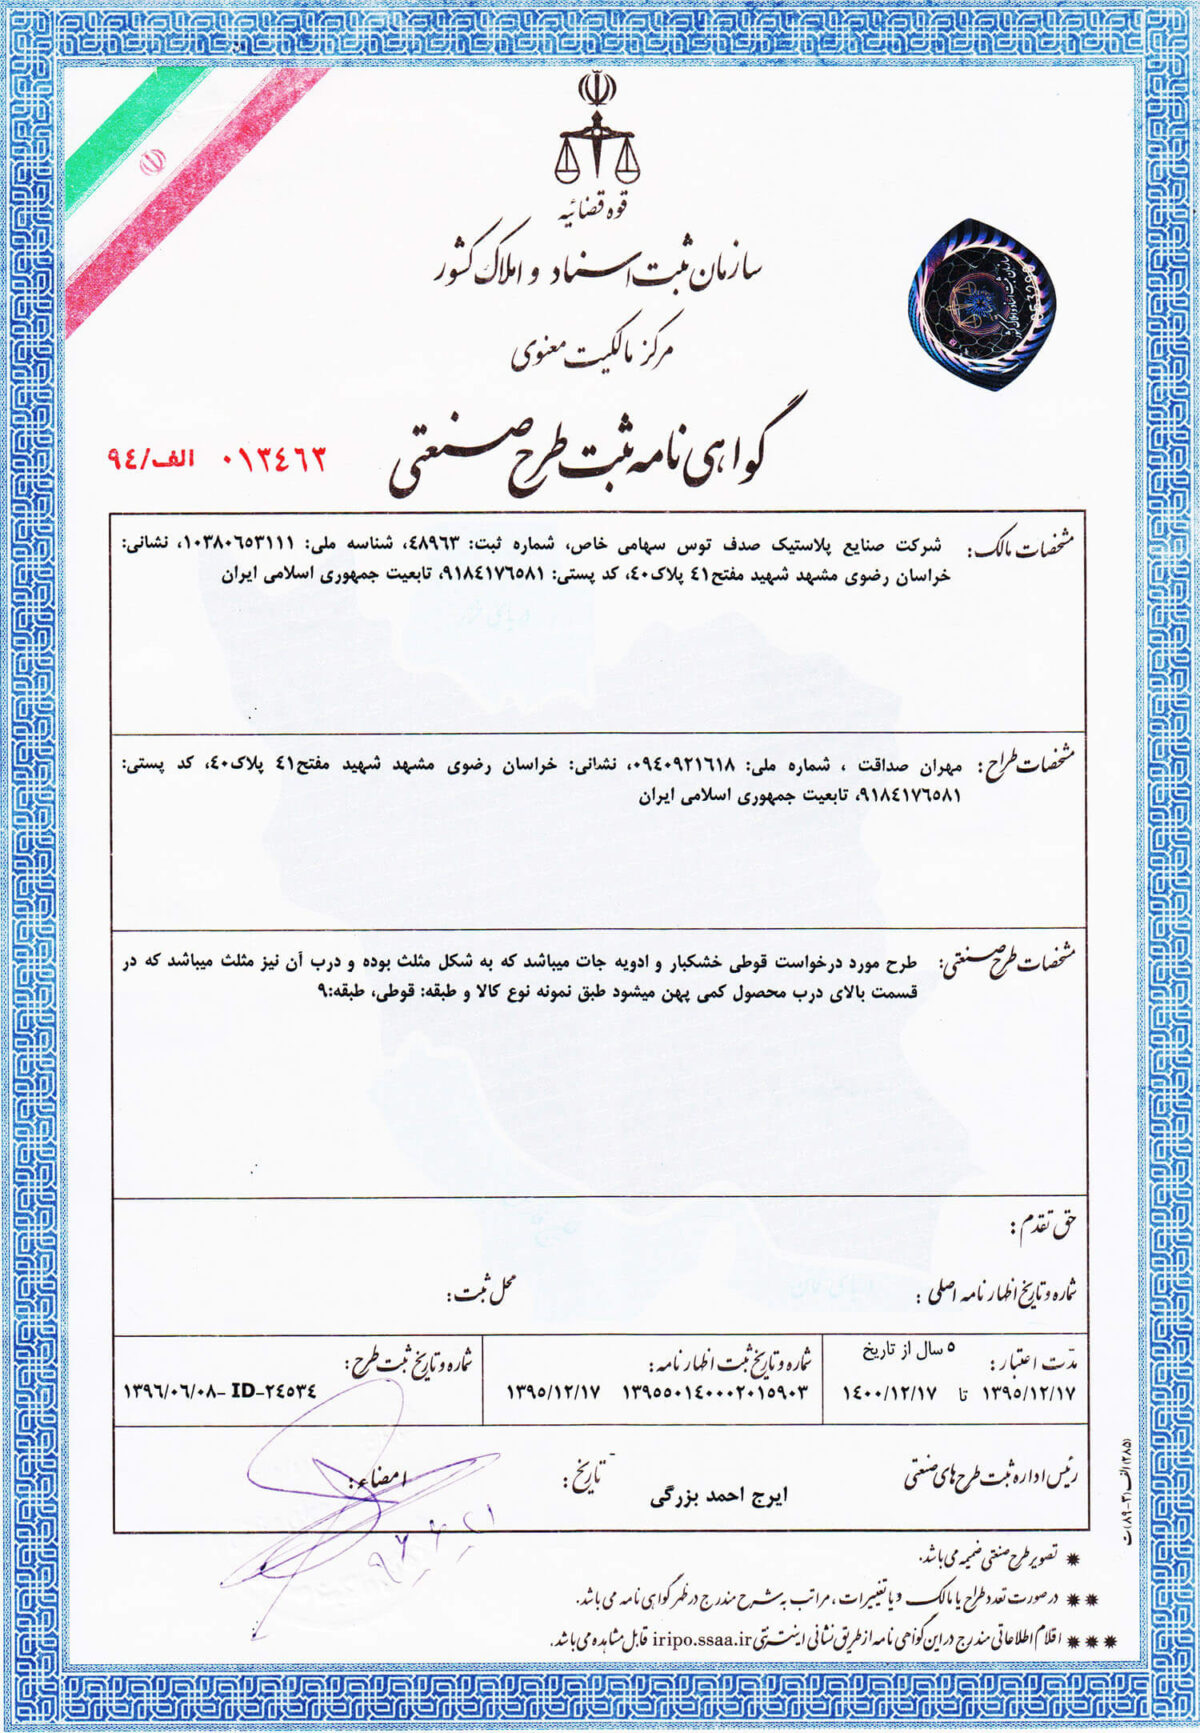 قوه قضائیه
سازمان ثبت اسناد و املاک کشور
مرکز مالکیت معنوی
گواهی نامه ثبت طرح صنعتی
الف/٩٤ ٠١٣٤٦٣
مشخصات مالک: شرکت صنایع پلاستیک صدف توس سهامی خاص، شماره ثبت: ٤٨٩٦٣، شناسه ملی: ١٠٣٨٠٦٥٣١١١، نشانی:
خراسان رضوی مشهد شهید مفتح٤١ پلاک٤٠، کد پستی: ٩١٨٤١٧٦٥٨١، تابعیت جمهوری اسلامی ایران
مشخصات طراح: مهران صداقت ، شماره ملی: ٠٩٤٠٩٢١٦١٨، نشانی: خراسان رضوی مشهد شهید مفتح٤١ پلاک٤٠، کد پستی:
٩١٨٤١٧٦٥٨١، تابعیت جمهوری اسلامی ایران
مشخصات طرح صنعتی: طرح مورد درخواست قوطی خشکبار و ادویه جات میباشد که به شکل مثلث بوده و درب آن نیز مثلث میباشد که در
قسمت بالای درب محصول کمی پهن میشود طبق نمونه نوع کالا و طبقه: قوطی، طبقه:٩
حق تقدم:
شماره و تاریخ اظهار نامه اصلی: محل ثبت:
مدّت اعتبار: ٥ سال از تاریخ
١٣٩٥/١٢/١٧ تا ١٤٠٠/١٢/١٧
شماره و تاریخ ثبت اظهار نامه:
١٣٩٥٥٠١٤٠٠٠٢٠١٥٩٠٣ ١٣٩٥/١٢/١٧
شماره و تاریخ ثبت طرح:
١٣٩٦/٠٦/٠٨- ID-٢٤٥٣٤
رئیس اداره ثبت طرح های صنعتی
ایرج احمد بزرگی
تاریخ: امضاء:
تصویر طرح صنعتی ضمیمه می باشد.
در صورت تعدد طراح یا مالک و یا تغییرات، مراتب به شرح مندرج در ظهر گواهی نامه می باشد.
اقلام اطلاعاتی مندرج در این گواهی نامه از طریق نشانی اینترنتی iripo.ssaa.ir قابل مشاهده می باشد.